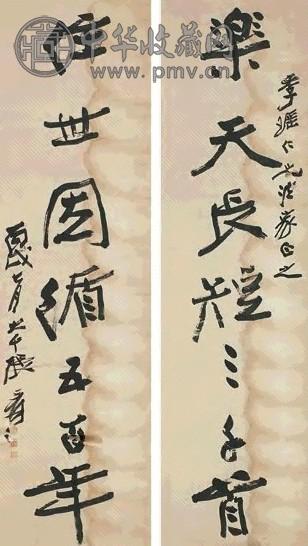 中华收藏网
www.pmv.cn
樂天長短三千首
仁兄法家正之
住世因循五百年
七月大千張爰